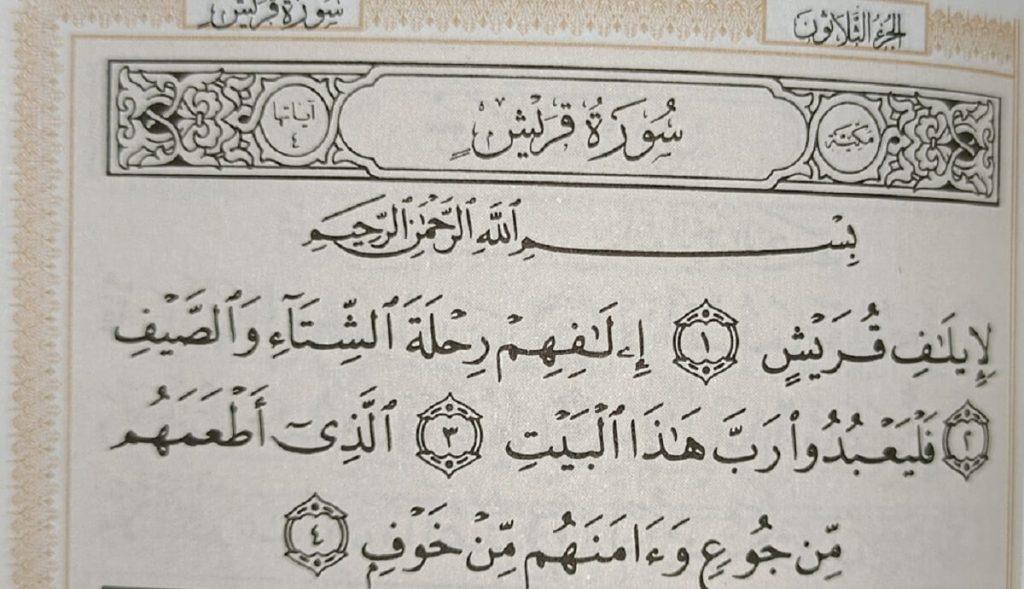 الجزء الثلاثون
سورة قريش
مكية
سُورَةُ قُرَيْشٍ
آياتها ٤
بِسْمِ ٱللَّهِ ٱلرَّحْمَٰنِ ٱلرَّحِيمِ
لِإِيلَٰفِ قُرَيْشٍ ١ إِۦلَٰفِهِمْ رِحْلَةَ ٱلشِّتَآءِ وَٱلصَّيْفِ
٢ فَلْيَعْبُدُوا۟ رَبَّ هَٰذَا ٱلْبَيْتِ ٣ ٱلَّذِىٓ أَطْعَمَهُم
مِّن جُوعٍ وَءَامَنَهُم مِّنْ خَوْفٍ ٤